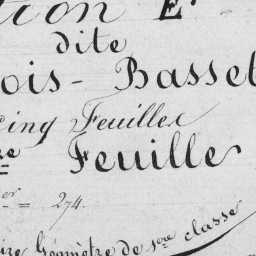 tion E.
dite
ois-Basset
cinq Feuilles
re Feuille
er = 274.
Géomètre de 1ere classe